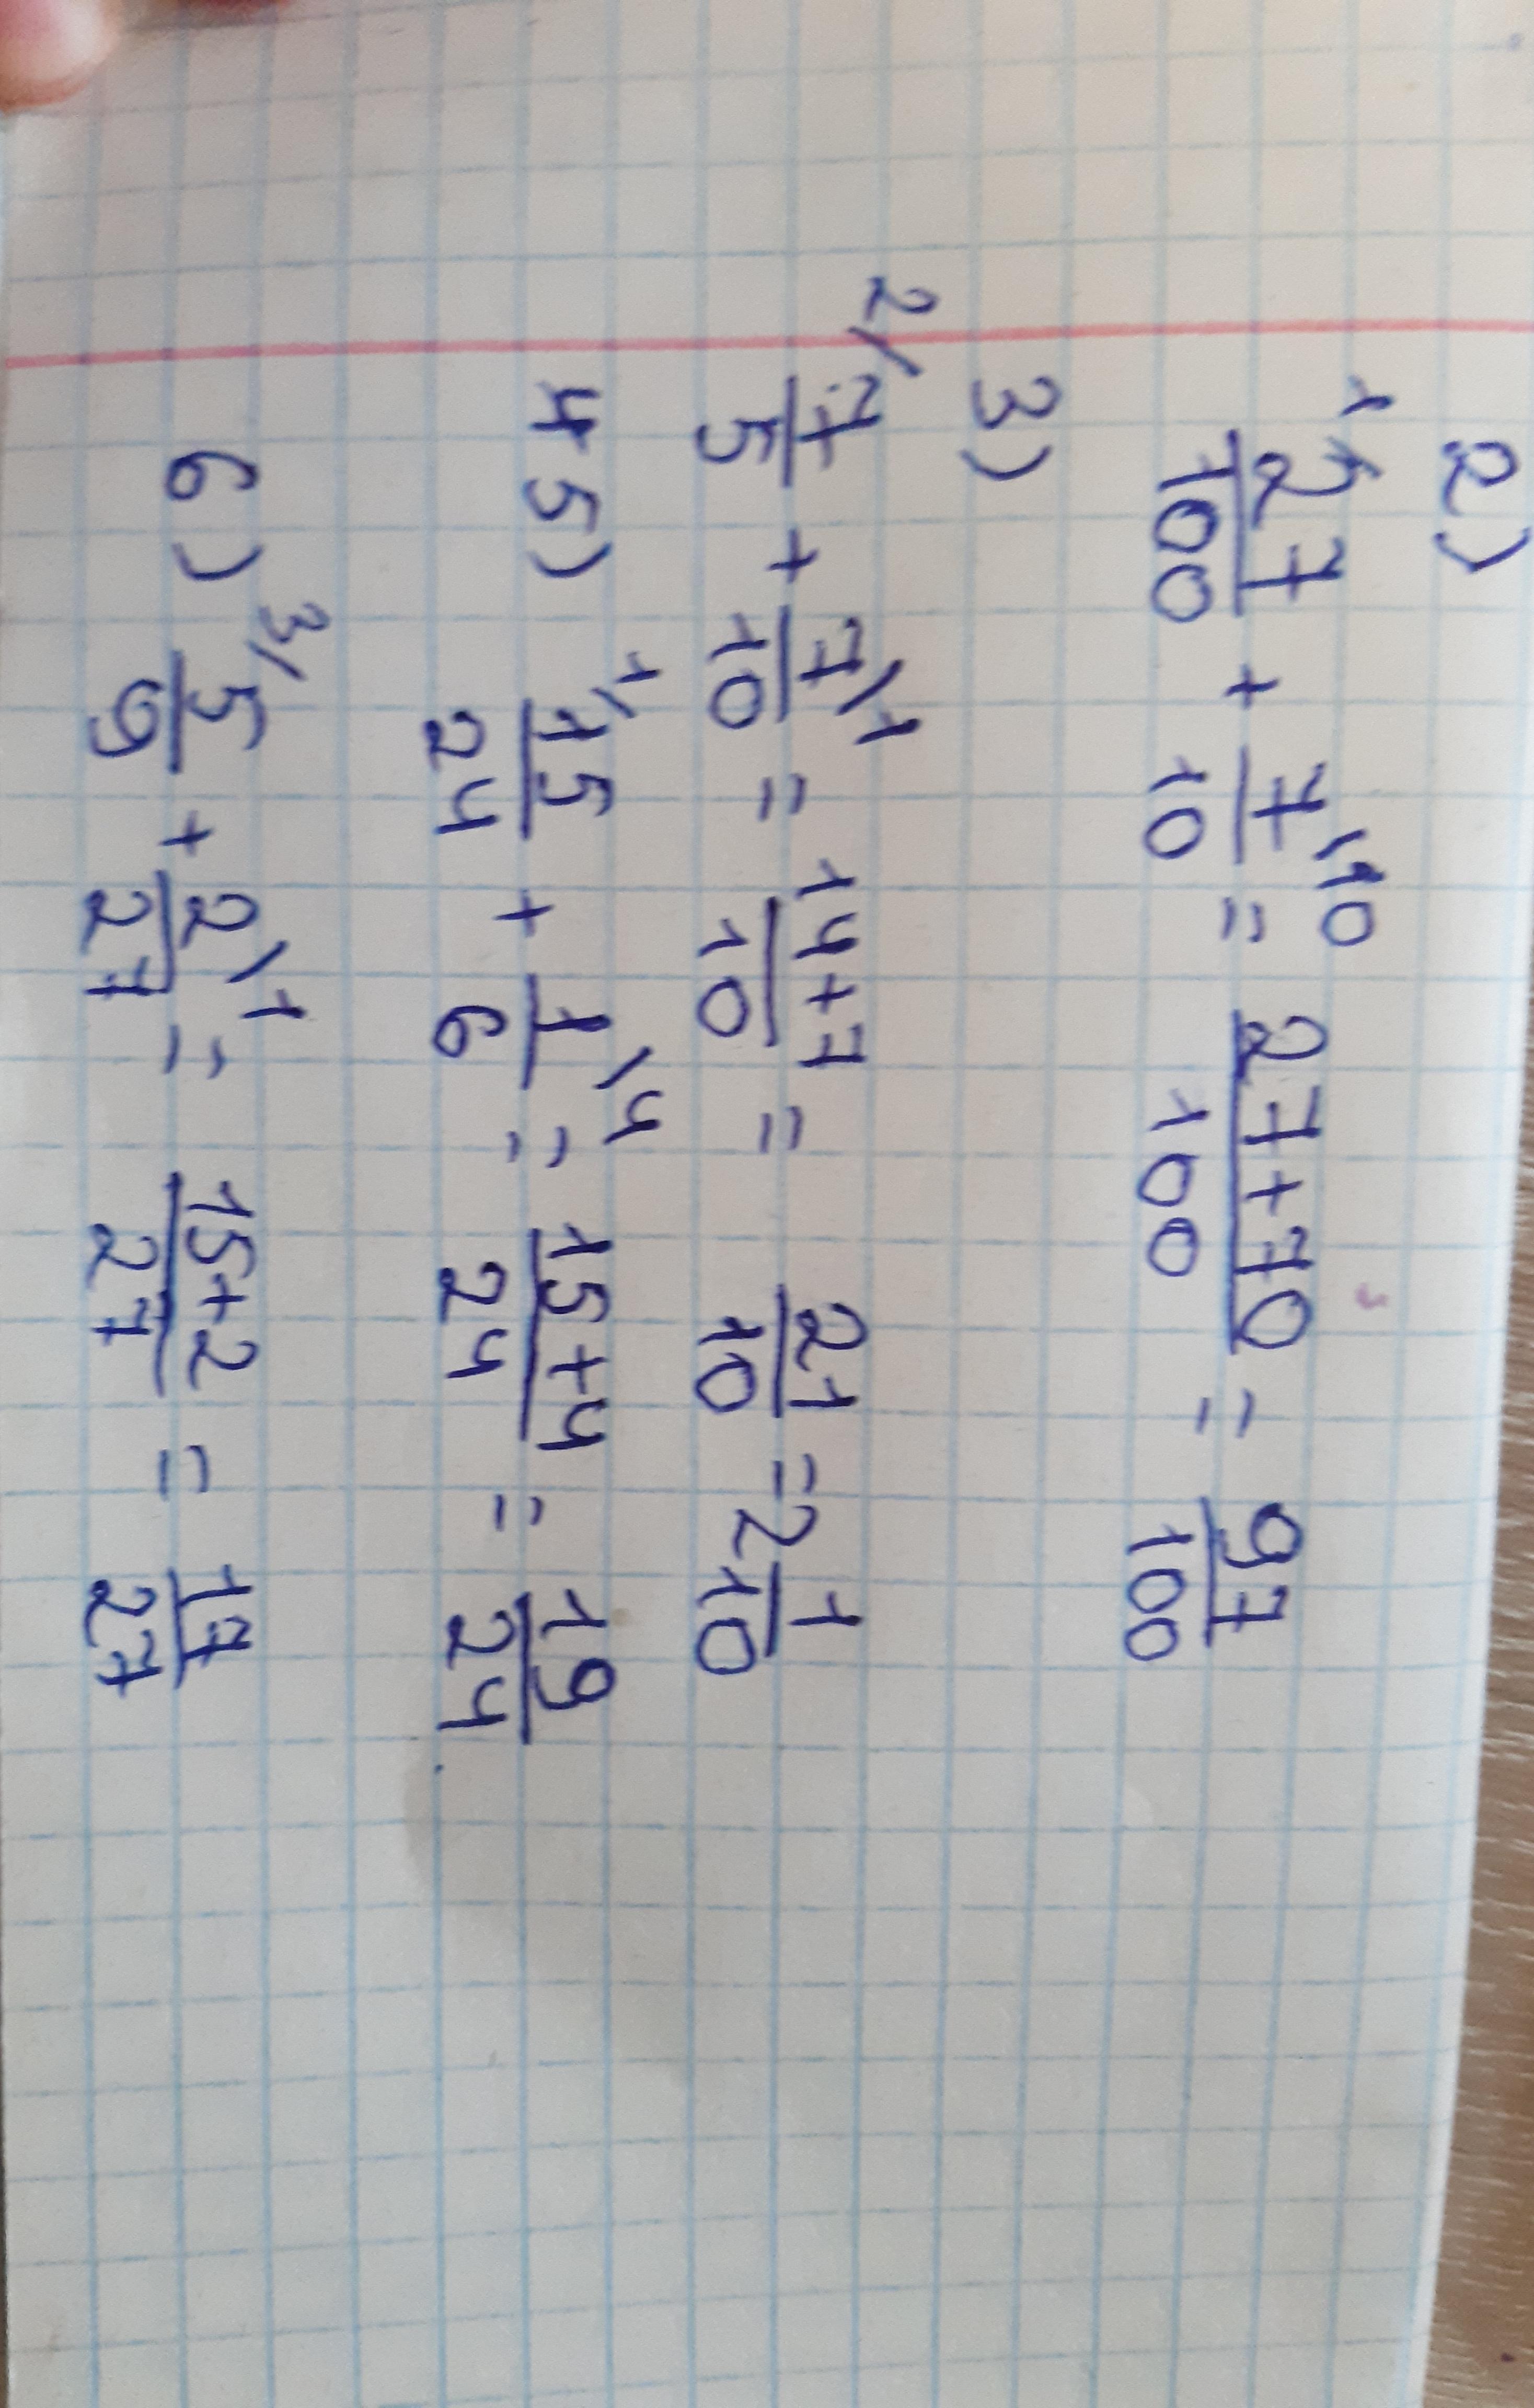 2)
1/ 27/100 + 7/10 \10 = 27+70/100 = 97/100
3)
2/ 7/5 + 7/10 \1 = 14+7/10 = 21/10 = 2 1/10
5) 1/ 15/24 + 1/6 \4 = 15+4/24 = 19/24
6) 3/ 5/9 + 2/27 \1 = 15+2/27 = 17/27